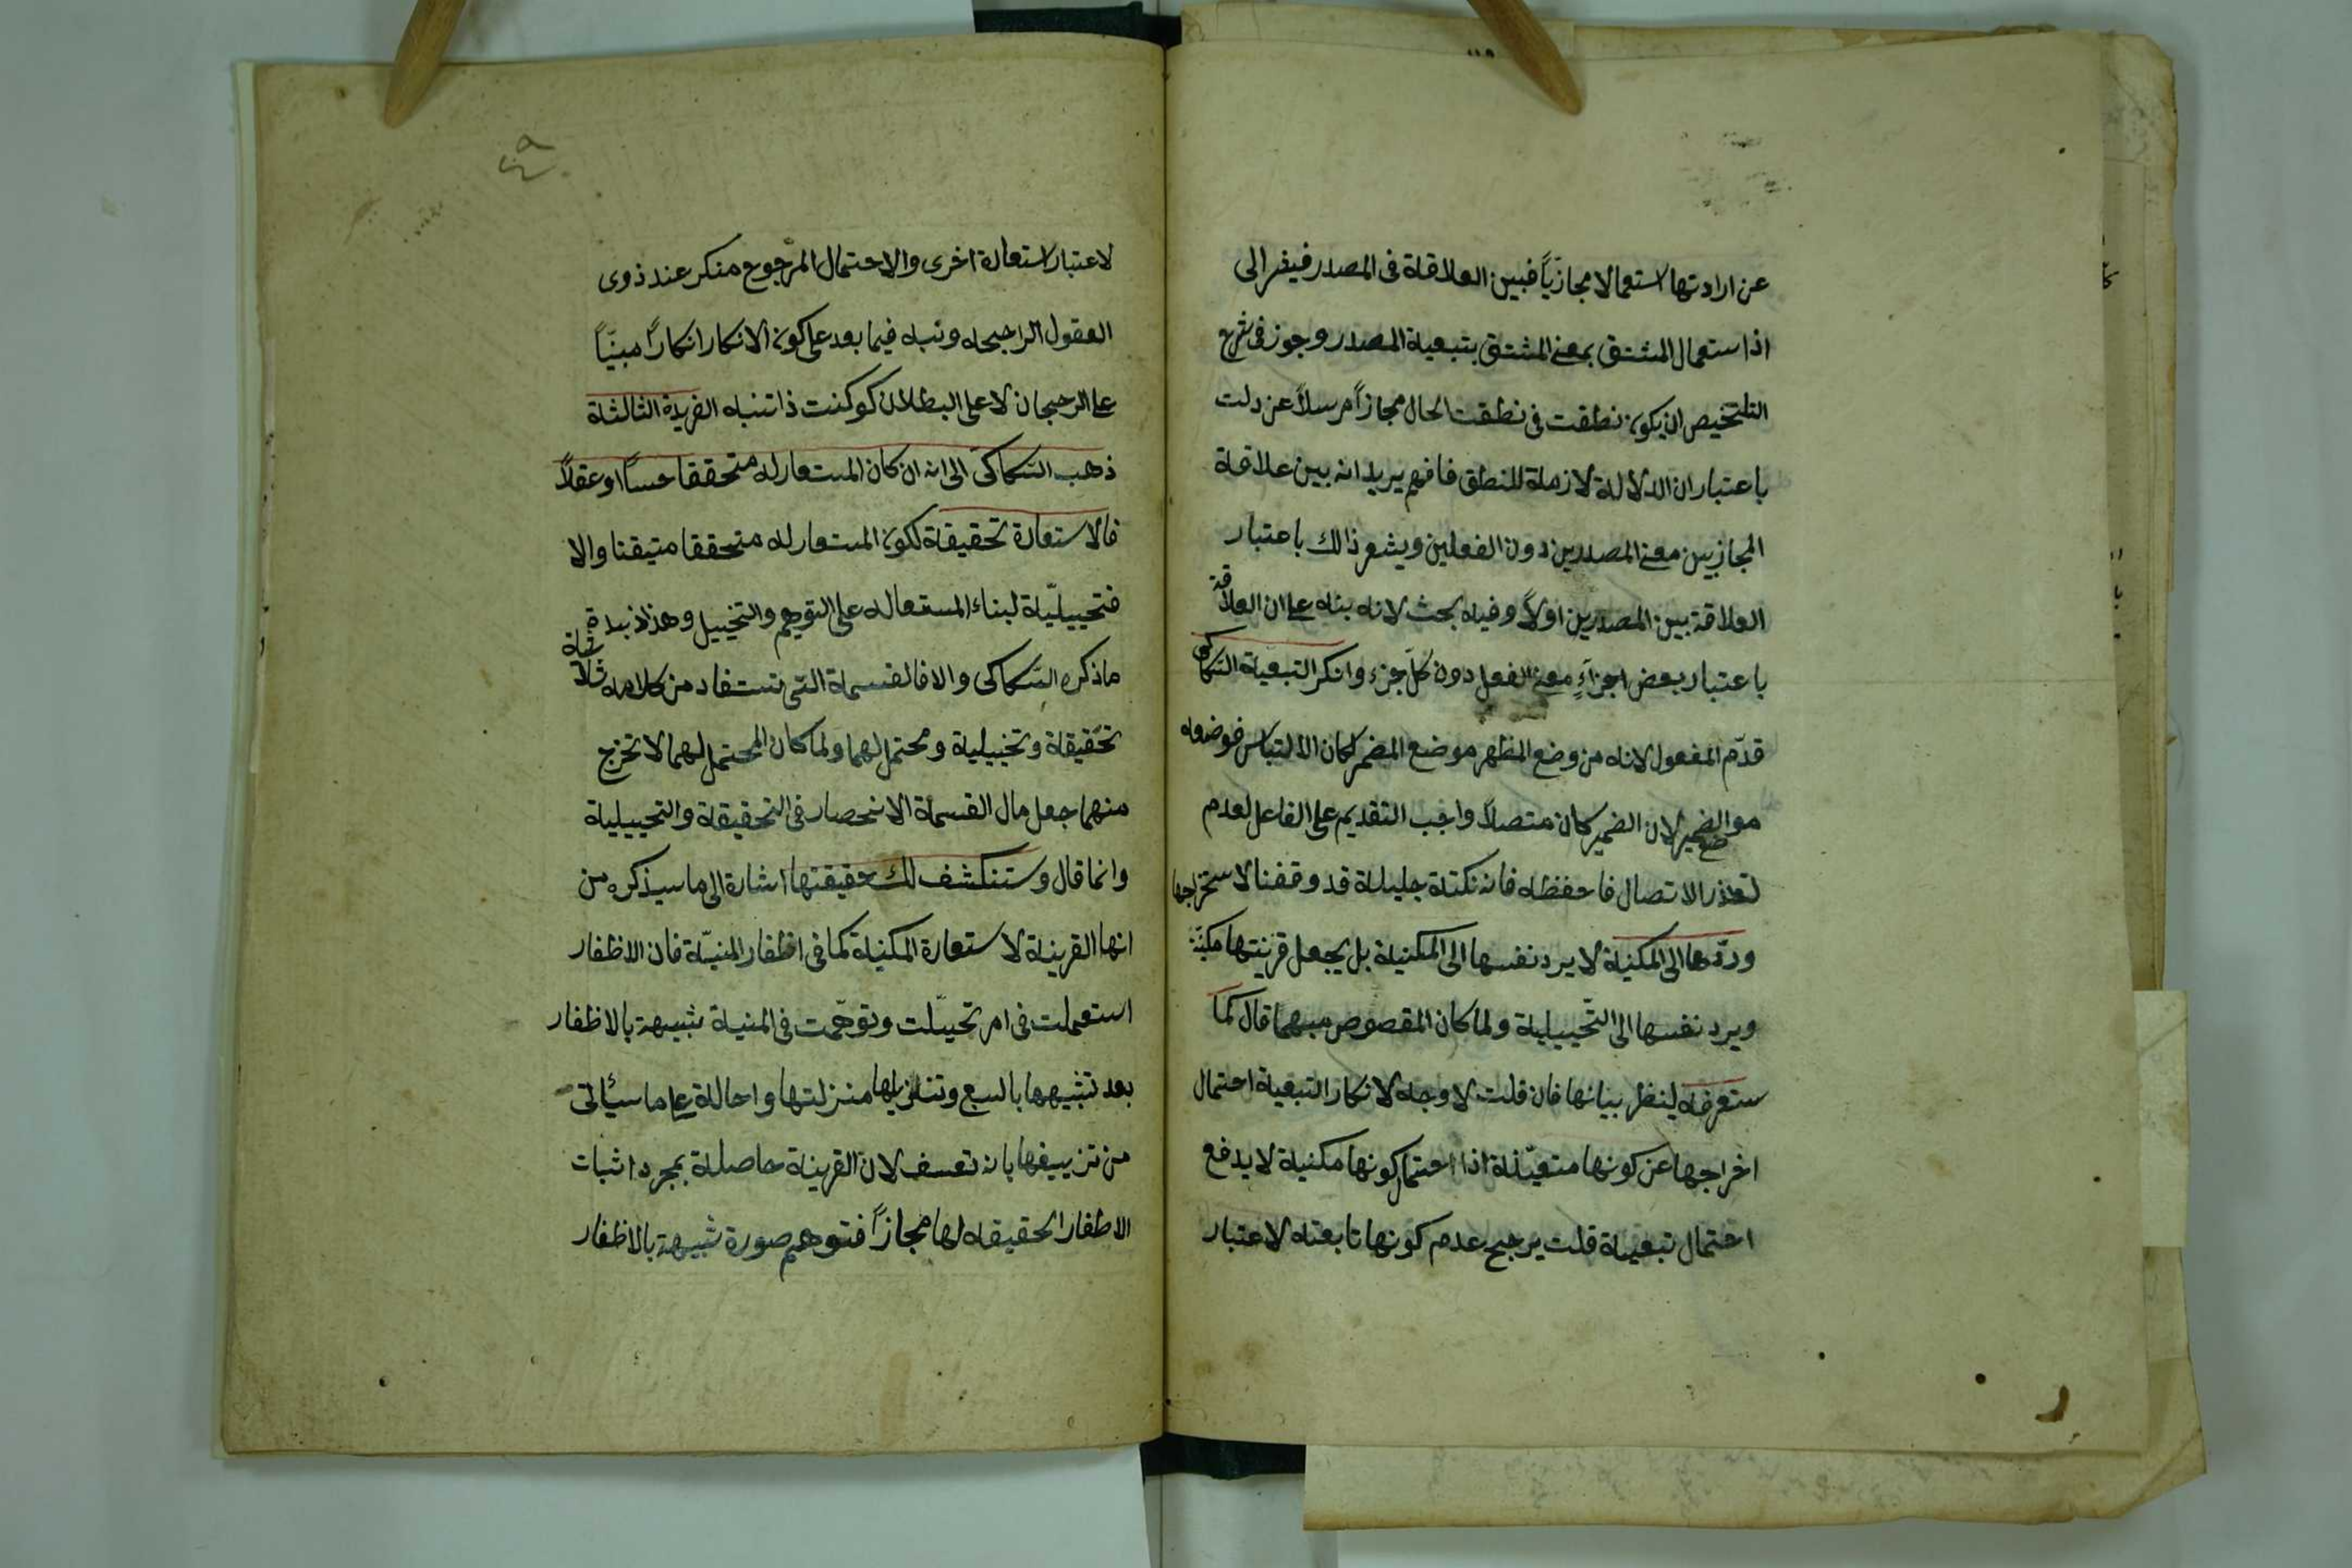 عن ارادتها استعمالا مجازيّاً فبين العلاقة فى المصدر فيفر الى
اذا استعمال المشتق بمعنے المشتق بتبعية المصدر وجوز فى شرح
التلخيص ان يكون نطقت فى نطقت الحال مجازاً مرسلاً عن دلت
باعتبار ان الدلالة لازمة للنطق فافهم يريد انه بين علاقة
المجاز بين معنے المصدرين دون الفعلين ويشعر ذالك باعتبار
العلاقة بين المصدرين اولاً وفيه بحث لانه بناه على ان العلاقة
باعتبار بعض اجزاءٍ معنے الفعل دون كلّ جزء وانكر التبعية السّكاكى
قدّم المفعول لانه من وضع المظهر موضع المضمر لمكان الالتباس فوضعوه
موالضميرضع لان الضمير كان متصلاً واجب التقديم على الفاعل لعدم
تعذر الاتصال فاحفظه فانه نكتة جليلة قد وقفنا لاستخراجها
وردّها الى المكنيّة لا يرد نفسها الى المكنية بل يجعل قرينتها مكنيّة
ويرد نفسها الى التّخييلية ولما كان المقصوص مبهما قال كما
ستعرفه لينظر بيانها فان قلت لا وجه لانكار التبعية احتمال
اخراجها عن كونها متعيّنة اذا احتمال كونها مكنية لا يدفع
احتمال تبعية قلت يرجح عدم كونها تابعته لاعتبار
٤٩
لاعتبار استعارة اخرى والاحتمال المرّجوح منكر عند ذوى
العقول الراجحه ونبه فيما بعد على كون الانكار انكاراً مبنيّاً
على الرجحان لا على البطلان كو كنت ذا تنبه الفريدة الثالثة
ذهب السّكاكى الى انه ان كان المستعار له متحققا حساً او عقلاً
فالاستعارة تحقيقة لكون المستعار له متحققا متيقنا والا
فتخييليّة لبناء المستعاله على التوهم والتخييل وهذا نبدة
ما ذكره السّكاكى والا فالقسمة التى تستفاد من كلامه ثلاثة
تحقيقة وتخييلية ومحتمل لهما ولما كان المحتمل لهما لا تخرج
منهما جعل مال القسمة الانحصار فى التحقيقة والتخييلية
وانما قال وستنكشف لك حقيقتها اشارة الى ما سيذكره من
انها القرينة لاستعارة المكنية كما فى اظفار المنيّة فان الاظفار
استعملت فى امر تخيّلت وتوهّمت فى المنية شبيهة بالاظفار
بعد تشبيهها بالسبع وتنزيلها منزلتها واحالة على ما سيأتى
من تزييفها بانه تعسف لان القرينة حاصلة بمجرد اثبات
الاظفار الحقيقه لها مجازاً فتوهم صورة شبيهة بالاظفار